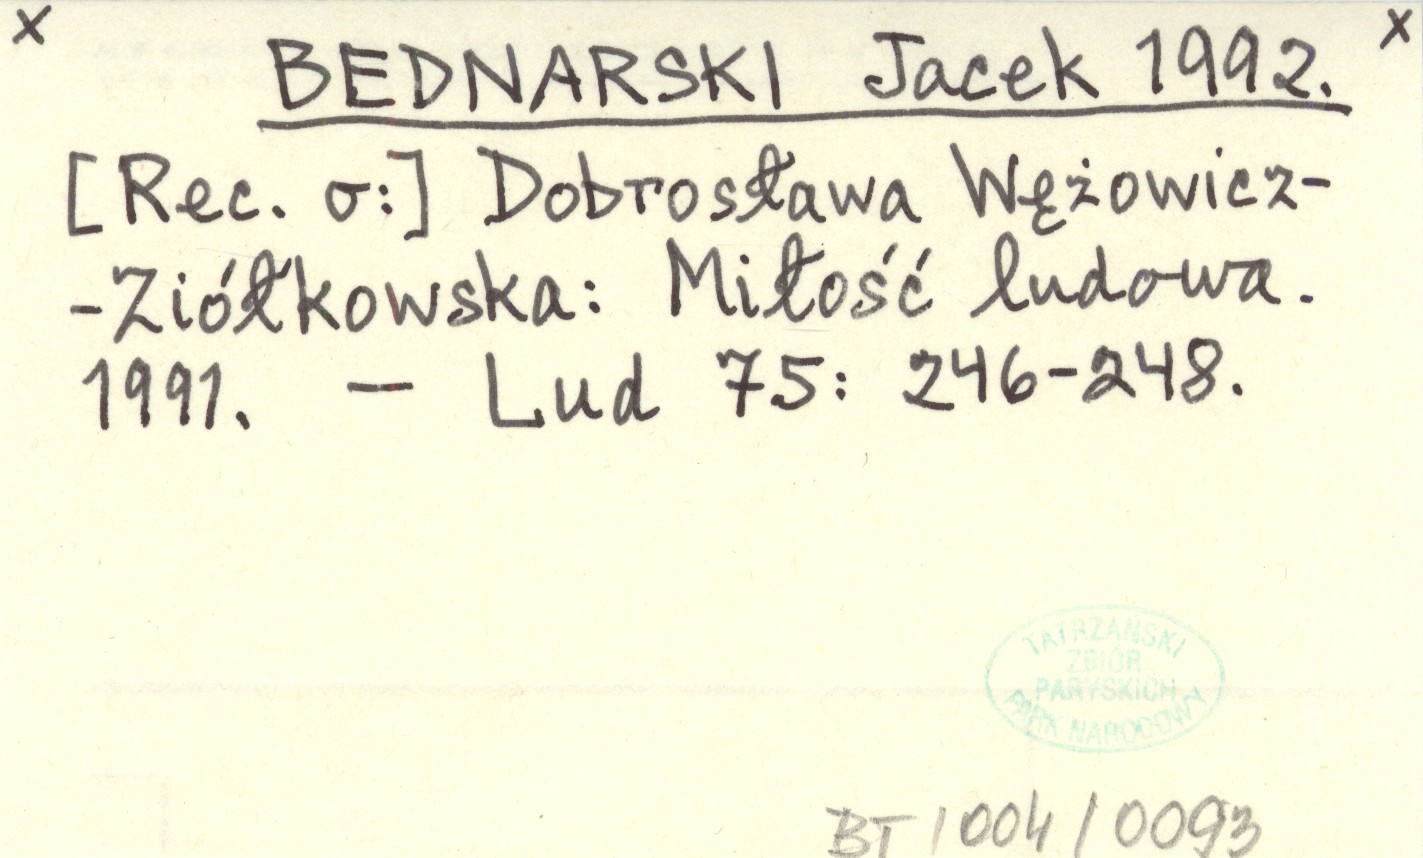 x x
BEDNARSKI Jacek 1992.
[Rec. o:] Dobrosława Wężowicz-
-Ziółkowska: Miłość ludowa.
1991. — Lud 75: 246-248.
TATRZAŃSKI
ZBIÓR
PARYSKICH
PARK NARODOWY
BT/004/0093